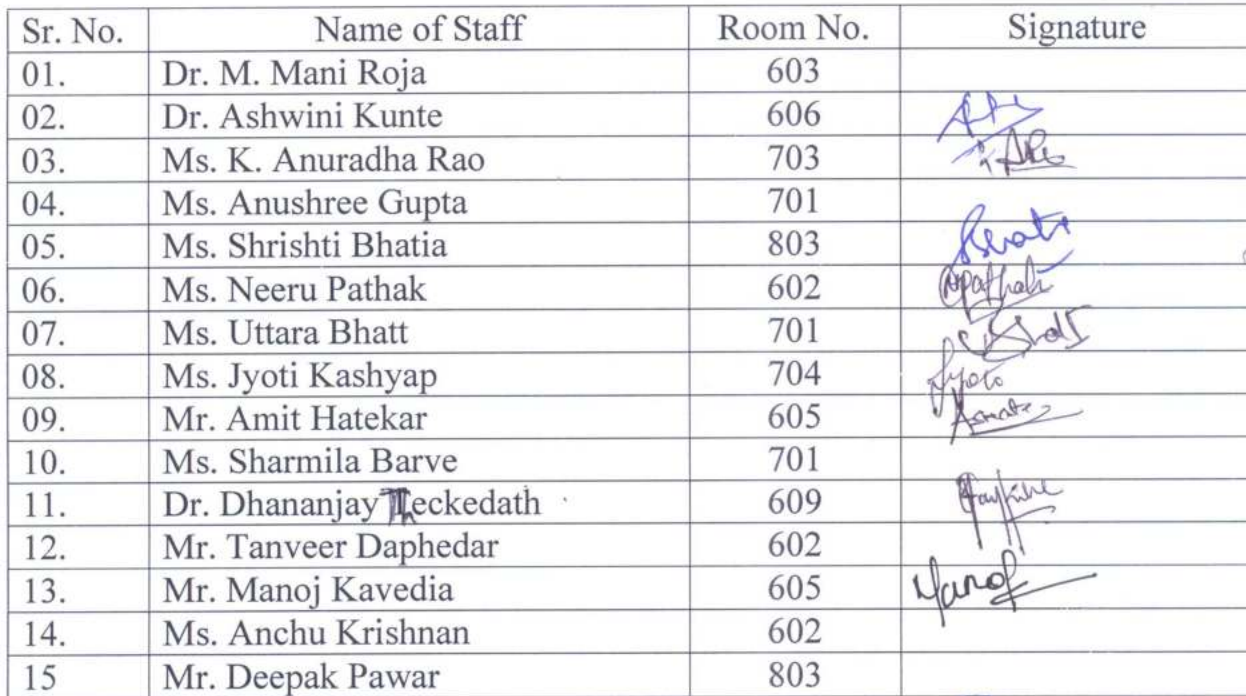 Sr. No. Name of Staff Room No. Signature
01. Dr. M. Mani Roja 603
02. Dr. Ashwini Kunte 606
03. Ms. K. Anuradha Rao 703
04. Ms. Anushree Gupta 701
05. Ms. Shrishti Bhatia 803
06. Ms. Neeru Pathak 602
07. Ms. Uttara Bhatt 701
08. Ms. Jyoti Kashyap 704 Jyoti
09. Mr. Amit Hatekar 605
10. Ms. Sharmila Barve 701
11. Dr. Dhananjay Theckedath 609
12. Mr. Tanveer Daphedar 602
13. Mr. Manoj Kavedia 605 Manoj
14. Ms. Anchu Krishnan 602
15 Mr. Deepak Pawar 803